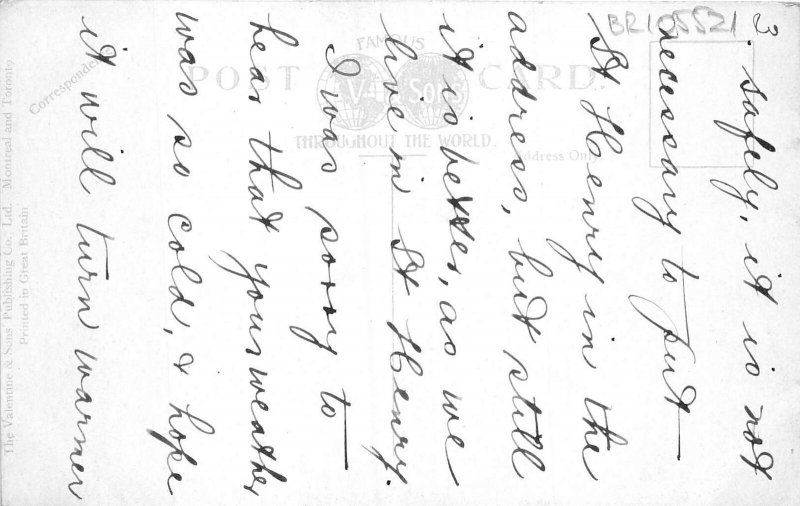 BR105521
3.
safely, it is not
necessary to put
St Henry in the
address, but still
it is better, as we
live in St Henry.
I was sorry to
hear that your weather
was so cold, & hope
it will turn warmer
POST CARD.
FAMOUS
V & Sons
THROUGHOUT THE WORLD.
Correspondence
Address Only
The Valentine & Sons Publishing Co., Ltd. Montreal and Toronto
Printed in Great Britain